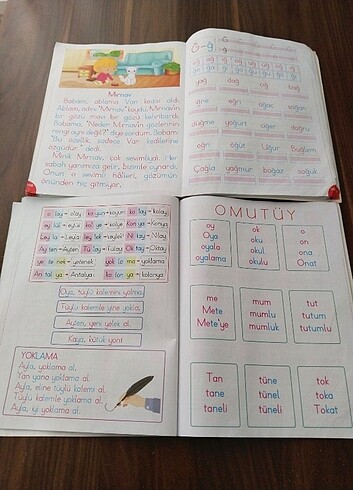 Mırnav
Babam, ablama Van kedisi aldı.
Ablam, adını "Mırnav" koydu. Mırnav'ın
bir gözü mavi bir gözü kehribardı.
Babama, "Neden Mırnav'ın gözlerinin
rengi aynı değil?" diye sordum. Babam:
"Bu özellik, sadece Van kedilerine
özgüdür." dedi.
Minik Mırnav, çok sevimliydi. Her
sabah yanımıza gelir, bizimle oynardı.
Onun o sevimli hâlleri, gözümün
önünden hiç gitmiyor.
Ğ-ğ
yağ dağ
öre eğri ağaç soğan
düğme yoğurt ciğer
eğri öğüt Uğur Buğlem
Çağla yağmur boğaz soğuk
olay→olay
kolay→kolay
Konya→Konya
Leyla→Leyla
Nilay→Nilay
Ayten→Ayten
Oktay→Oktay
yetenek→yetenek yoklama→yoklama
Antalya→Antalya kolonya→kolonya
Oya, tüylü kalemini yolma.
Tüylü kalemle yine yokla.
Ayten, yeni yelek al.
Kaya, kütük yont.
YOKLAMA
Ayla, yoklama al.
Yan yana yoklama al.
Ayla, eline tüylü kalemi al.
Tüylü kalemle yoklama al.
Ayla, iyi yoklama al.
OMUTÜY
oy ok o
Oya oku on
oyala okul ona
oyalama okulu Onat
me mum tut
Mete mumlu tutum
Mete'ye mumluk tutumlu
Tan tüne tok
tane tünel toka
taneli tüneli Tokat